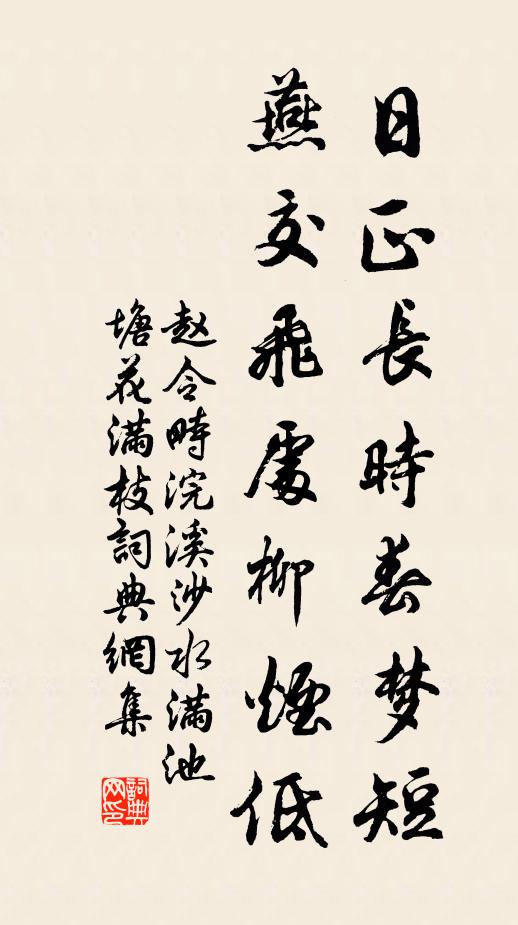 日正長時春梦短
燕交飛處柳煙低
赵令時浣溪沙水滿池
塘花滿枝詞典網集
詞典
网印